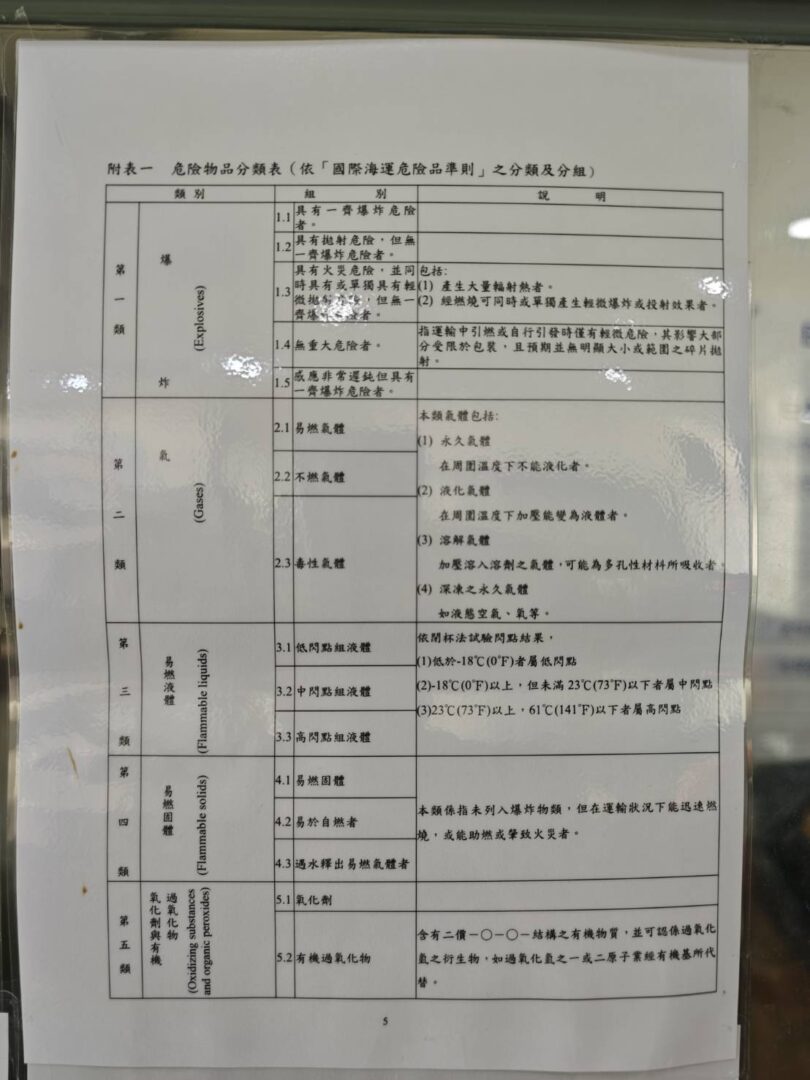 附表一　危險物品分類表（依「國際海運危險品準則」之分類及分組）
類別　組別　說明
第一類
爆炸
(Explosives)
1.1 具有一齊爆炸危險
者。
1.2 具有拋射危險，但無
一齊爆炸危險者。
1.3 具有火災危險，並同
時具有或單獨具有輕
微拋射危險，但無一
齊爆炸危險者。
包括:
(1) 產生大量輻射熱者。
(2) 經燃燒可同時或單獨產生輕微爆炸或投射效果者。
1.4 無重大危險者。
指運輸中引燃或自行引發時僅有輕微危險，其影響大部
分受限於包裝，且預期並無明顯大小或範圍之碎片拋
射。
1.5 感應非常遲鈍但具有
一齊爆炸危險者。
第二類
氣
(Gases)
2.1 易燃氣體
2.2 不燃氣體
2.3 毒性氣體
本類氣體包括:
(1) 永久氣體
在周圍溫度下不能液化者。
(2) 液化氣體
在周圍溫度下加壓能變為液體者。
(3) 溶解氣體
加壓溶入溶劑之氣體，可能為多孔性材料所吸收者。
(4) 深凍之永久氣體
如液態空氣、氧等。
第三類
易燃液體
(Flammable liquids)
3.1 低閃點組液體
3.2 中閃點組液體
3.3 高閃點組液體
依閉杯法試驗閃點結果，
(1)低於-18℃(0℉)者屬低閃點
(2)-18℃(0℉)以上，但未滿 23℃(73℉)以下者屬中閃點
(3)23℃(73℉)以上，61℃(141℉)以下者屬高閃點
第四類
易燃固體
(Flammable solids)
4.1 易燃固體
4.2 易於自燃者
4.3 遇水釋出易燃氣體者
本類係指未列入爆炸物類，但在運輸狀況下能迅速燃
燒，或能助燃或肇致火災者。
第五類
氧化劑與有機
過氧化物
(Oxidizing substances
and organic peroxides)
5.1 氧化劑
5.2 有機過氧化物
含有二價－○－○－結構之有機物質，並可認係過氧化
氫之衍生物，如過氧化氫之一或二原子業經有機基所代
替。
5